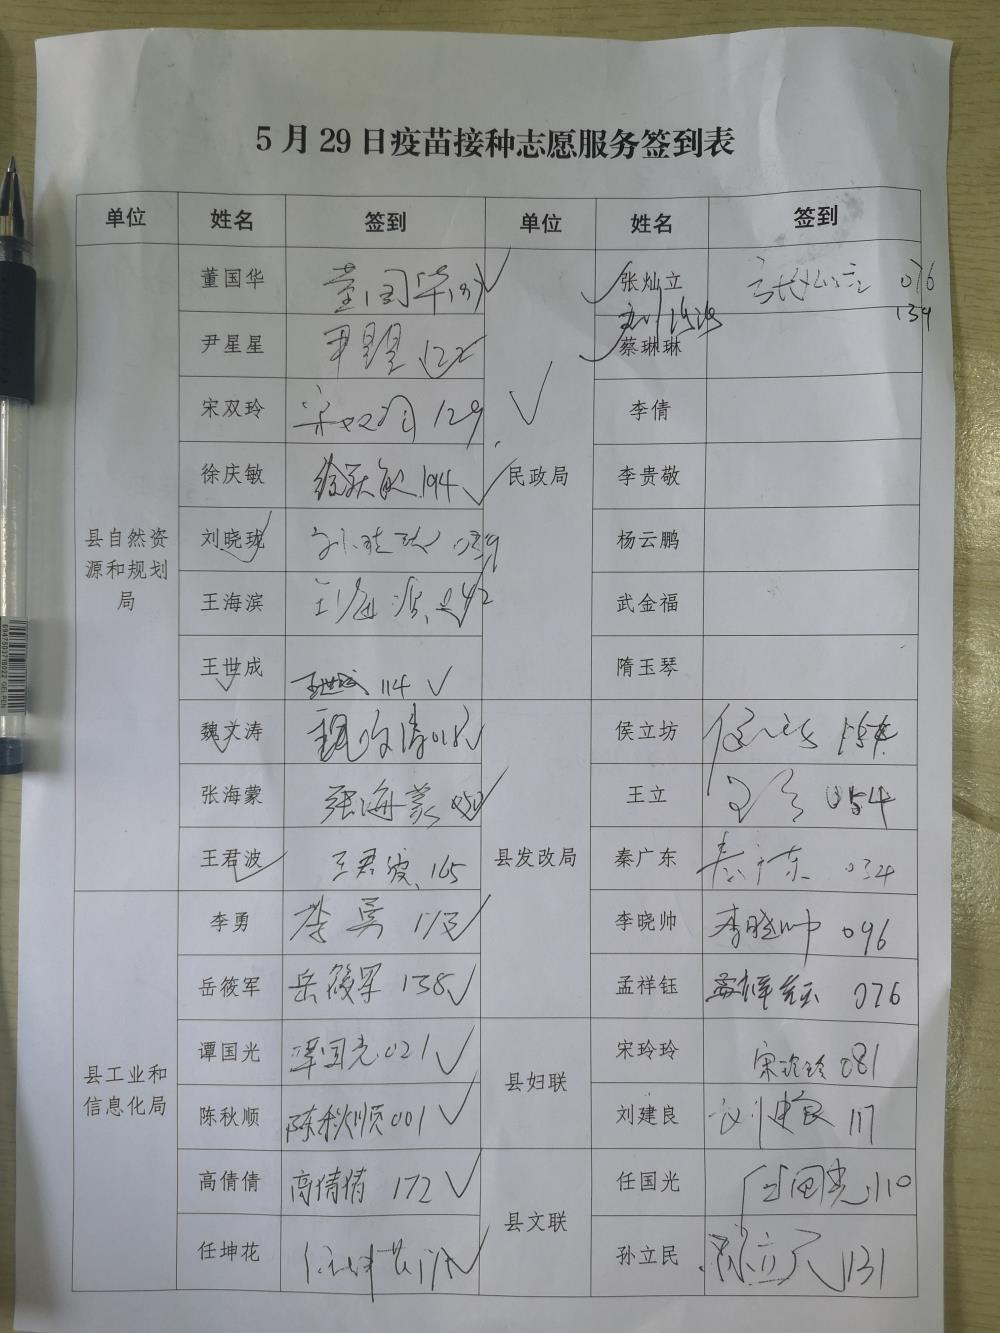 5月29日疫苗接种志愿服务签到表
单位 姓名 签到 单位 姓名 签到
县自然资源和规划局
董国华 董国华
尹星星 尹星星 122
宋双玲 宋双玲 129
徐庆敏 徐庆敏 194
刘晓珑 刘晓珑 039
王海滨 王海滨 042
王世成 王世成 114
魏文涛 魏文涛 018
张海蒙 张海蒙 050
王君波 王君波 165
县工业和信息化局
李勇 李勇 113
岳筱军 岳筱军 138
谭国光 谭国光 021
陈秋顺 陈秋顺 001
高倩倩 高倩倩 172
任坤花 任坤花
民政局
张灿立 张灿立 076
139
蔡琳琳
李倩
李贵敬
杨云鹏
武金福
隋玉琴
县发改局
侯立坊 侯立坊
王立 王立 054
秦广东 秦广东 034
李晓帅 李晓帅 096
孟祥钰 孟祥钰 076
县妇联
宋玲玲 宋玲玲 081
刘建良 刘建良 117
县文联
任国光 任国光 110
孙立民 孙立民 131